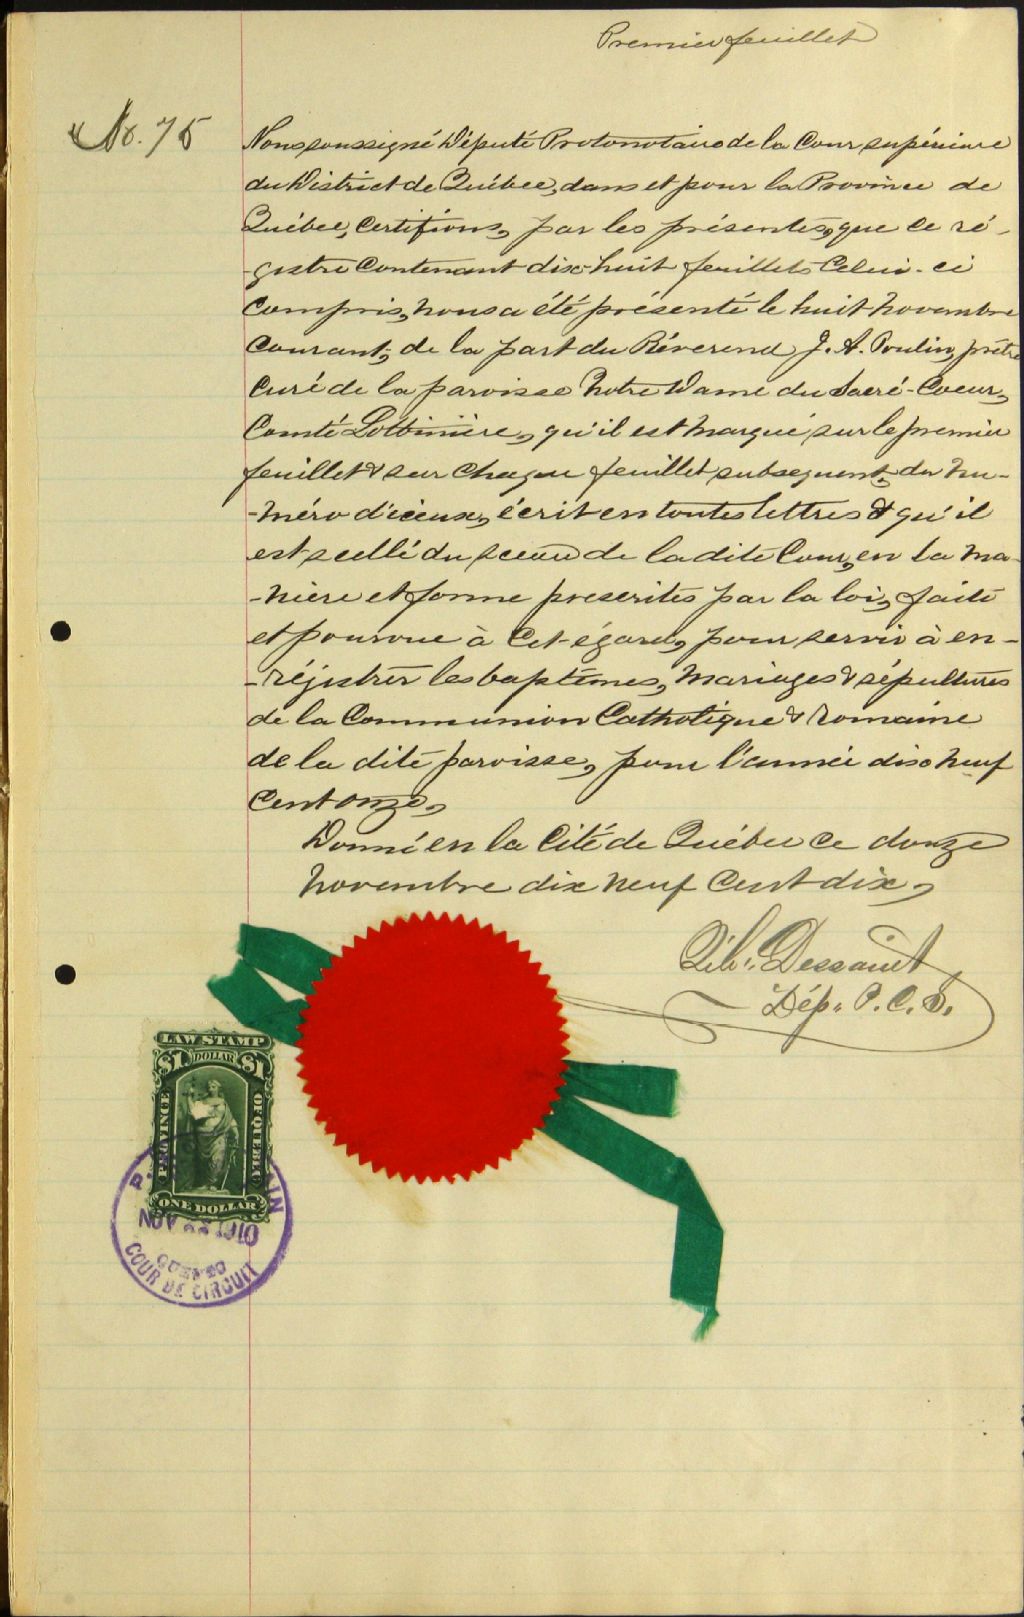 Premier feuillet
No. 75
Nous soussigné Député Protonotaire de la Cour supérieure
du District de Québec, dans et pour la Province de
Québec, certifions, par les présentes, que ce ré-
-gistre contenant dix-huit feuillets celui-ci
compris, nous a été présenté le huit novembre
courant, de la part du Réverend J. A. Poulin, prêtre
curé de la paroisse Notre Dame du Sacré-Coeur,
Comté Lotbinière, qu'il est marqué sur le premier
feuillet & sur chaque feuillet subsequent, du nu-
-méro d'iceux, écrit en toutes lettres & qu'il
est scellé du sceau de la dite Cour, en la ma-
-nière et forme prescrites par la loi, faite
et pourvue à cet égard, pour servir à en-
-régistrer les baptêmes, mariages & sépultures
de la Communion Catholique & romaine
de la dite paroisse, pour l'année dix neuf
cent onze,
Donné en la Cité de Québec ce douze
novembre dix neuf cent dix,
Dessaint
Dép. P. C. S.
LAW STAMP
$1 DOLLAR $1
PROVINCE OF QUEBEC
ONE DOLLAR
NOV 1910
QUEBEC
COUR DE CIRCUIT